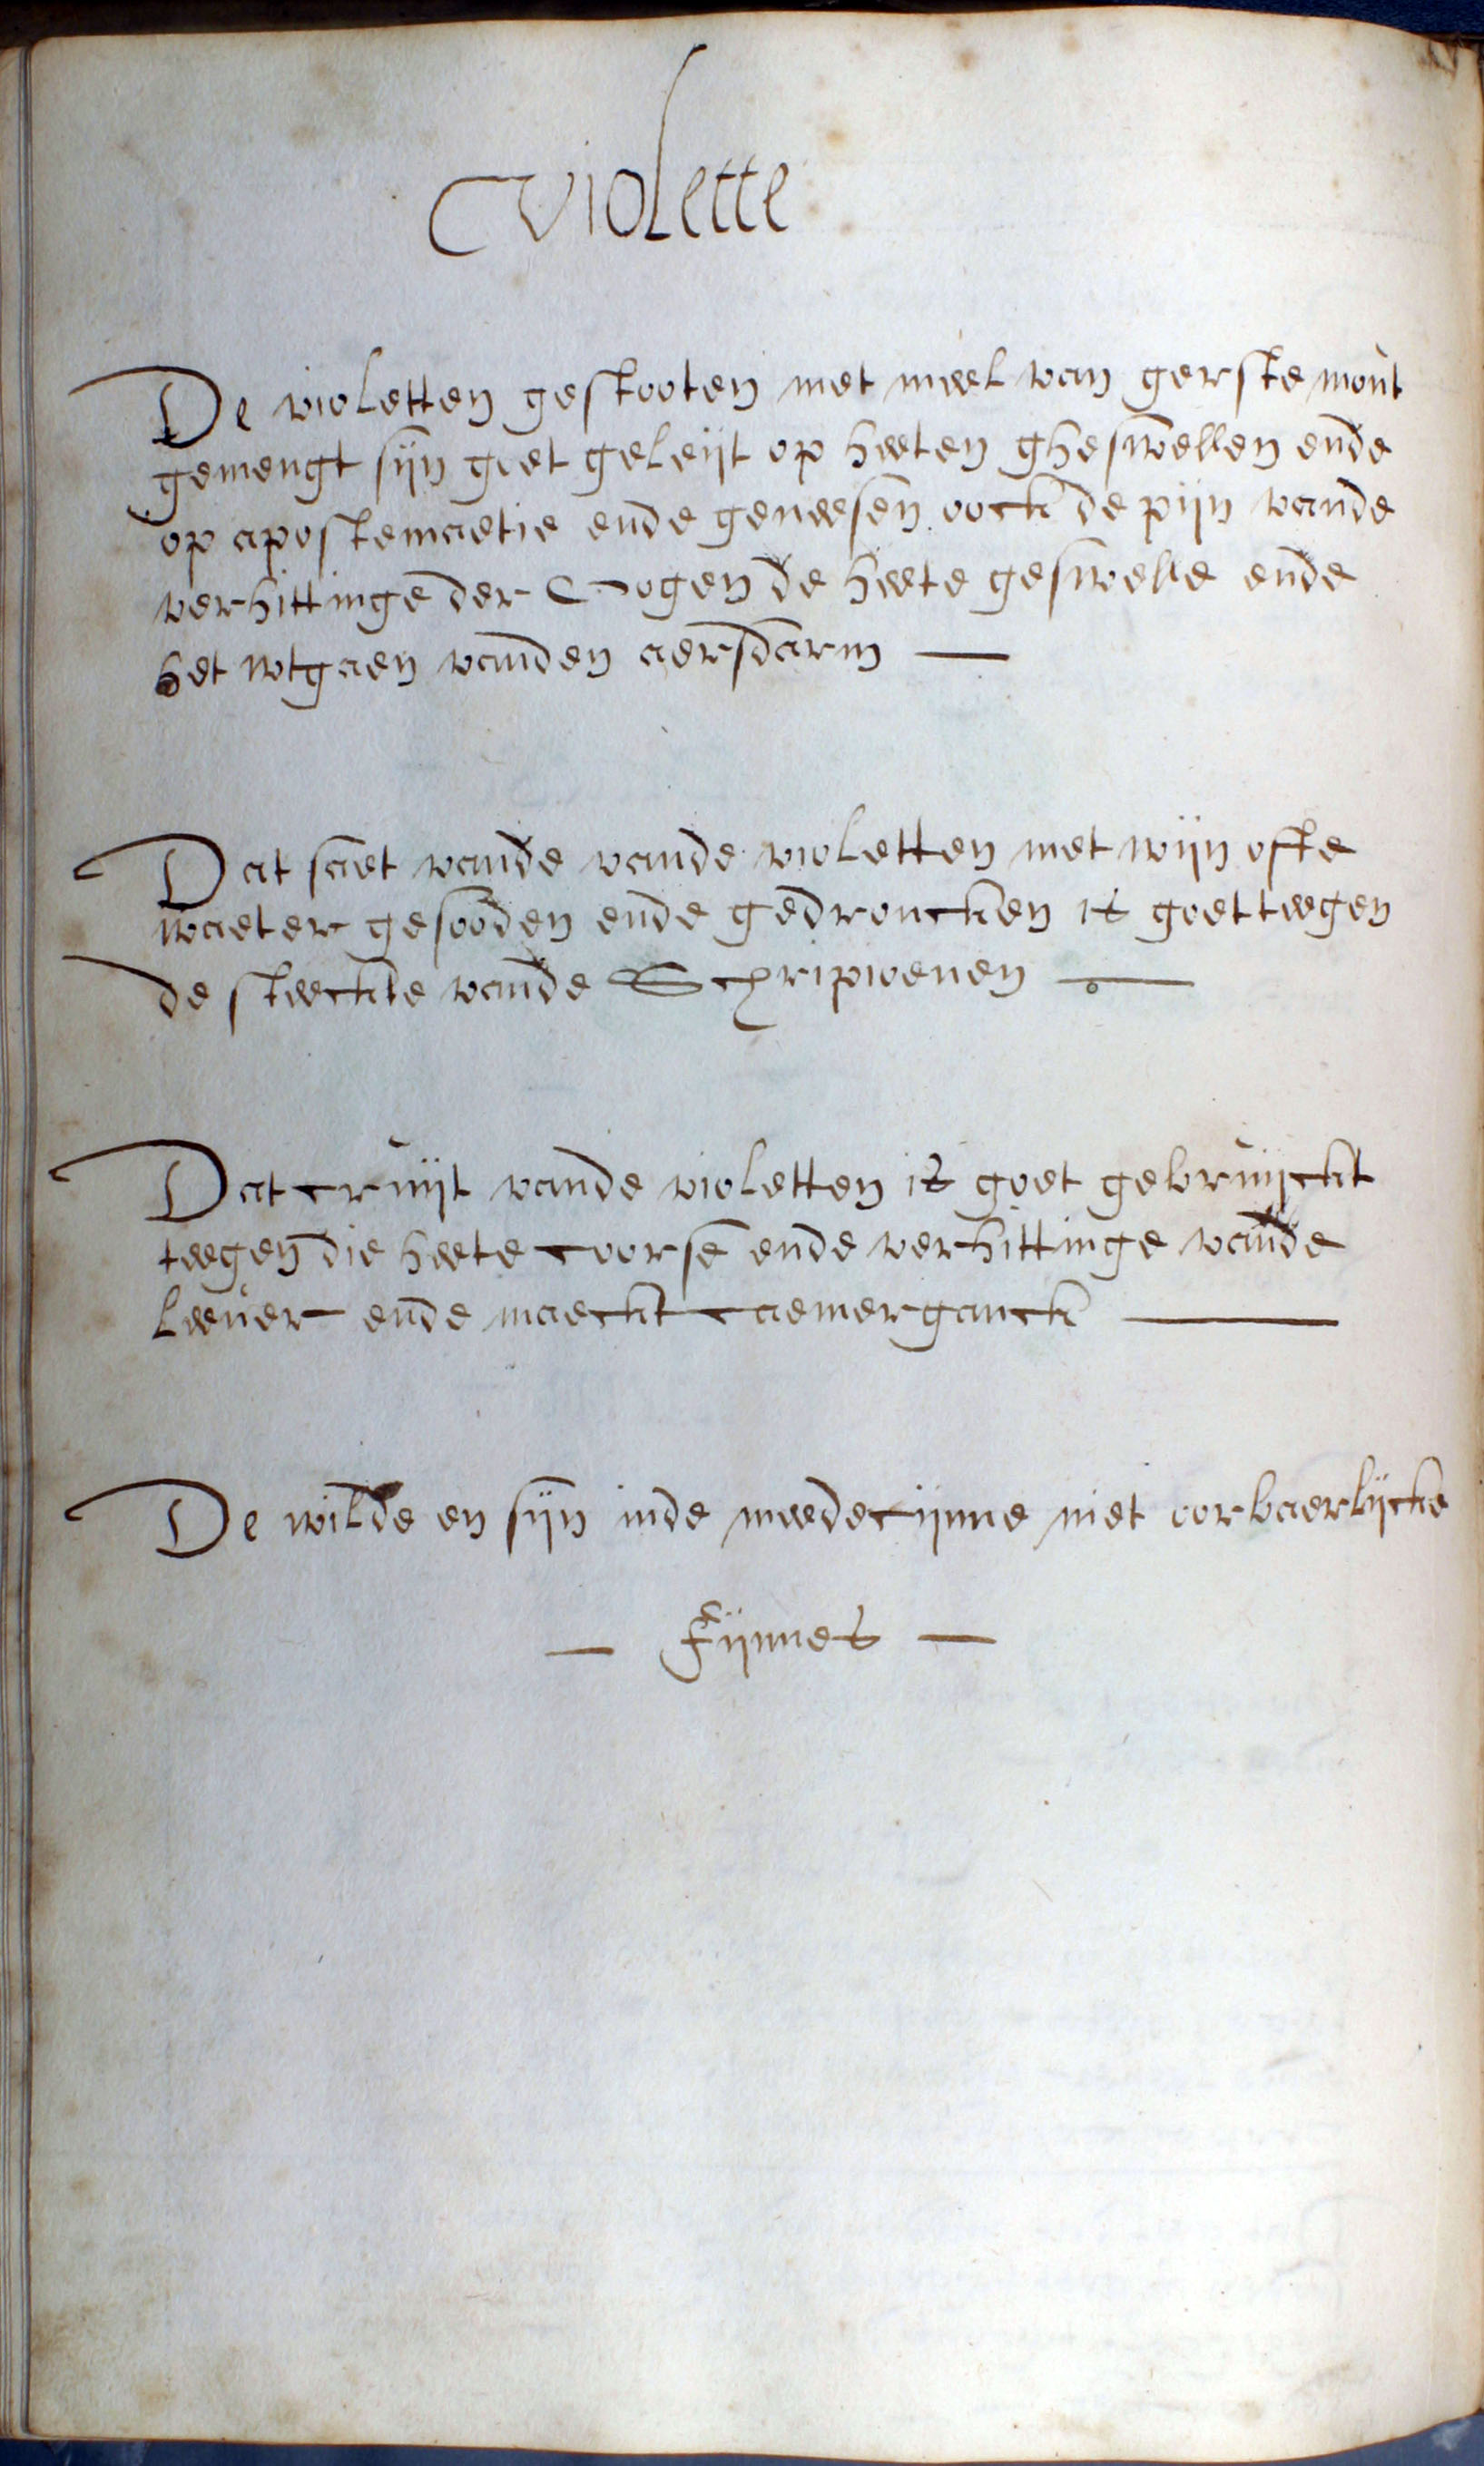 violette
De violetten gestooten met meel van gerste mout
gemengt sijn goet geleijt op heeten gheswellen ende
op apostemaetie ende geneesen oock de pijn vande
verhittinge der Oogen de heete geswelle ende
het wtgaen vanden aersdarm
Dat saet vande vande violetten met wijn ofte
waeter gesooden ende gedroncken is goet teegen
de steeckte vande Schripioenen
Dat cruijt vande violetten is goet gebruijckt
teegen die heete coorse ende verhittinge vande
leever ende maeckt caemerganck
De wilde en sijn inde meedecijnne niet oorbaerlijcke
Fijnnes